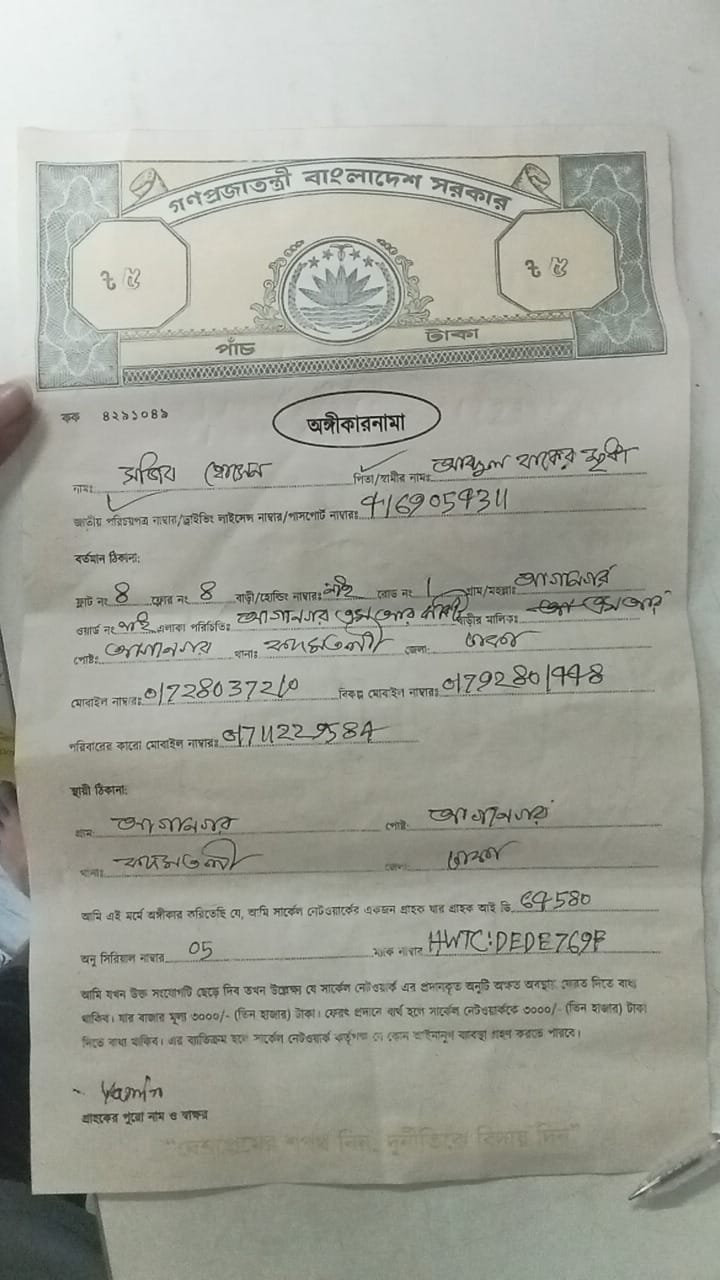 গণপ্রজাতন্ত্রী বাংলাদেশ সরকার
৳ ৫ ৳ ৫
পাঁচ টাকা
কক ৪২৯১০৪৯
অঙ্গীকারনামা
নামঃ হোসেন পিতা/স্বামীর নামঃ আব্দুল
জাতীয় পরিচয়পত্র নাম্বার/ড্রাইভিং লাইসেন্স নাম্বার/পাসপোর্ট নাম্বারঃ 4169059311
বর্তমান ঠিকানা:
ফ্লাট নং 8 ফ্লোর নং 8 বাড়ী/হোল্ডিং নাম্বারঃ নাই রোড নং 1 গ্রাম/মহল্লাঃ আগানগর
ওয়ার্ড নং নাই এলাকা পরিচিতিঃ আগানগর বাড়ীর মালিকঃ
পোষ্টঃ আগানগর থানাঃ কদমতলী জেলা: ঢাকা
মোবাইল নাম্বারঃ 01728037210 বিকল্প মোবাইল নাম্বারঃ 01792801448
পরিবারের কারো মোবাইল নাম্বারঃ 01711229584
স্থায়ী ঠিকানা:
গ্রাম: আগানগর পোষ্ট: আগানগর
থানাঃ কদমতলী জেলা: ঢাকা
আমি এই মর্মে অঙ্গীকার করিতেছি যে, আমি সার্কেল নেটওয়ার্কের একজন গ্রাহক যার গ্রাহক আই ডি 64580
অনু সিরিয়াল নাম্বার 05 ম্যাক নাম্বার HWTC:DEDE769F
আমি যখন উক্ত সংযোগটি ছেড়ে দিব তখন উল্লেক্ষ্য যে সার্কেল নেটওয়ার্ক এর প্রদানকৃত অনুটি অক্ষত অবস্থায় ফেরত দিতে বাধ্য
থাকিব। যার বাজার মূল্য ৩০০০/- (তিন হাজার) টাকা। ফেরৎ প্রদানে ব্যর্থ হলে সার্কেল নেটওয়ার্ককে ৩০০০/- (তিন হাজার) টাকা
দিতে বাধ্য থাকিব। এর ব্যতিক্রম হলে সার্কেল নেটওয়ার্ক কর্তৃপক্ষ যে কোন আইনানুগ ব্যবস্থা গ্রহণ করতে পারবে।
গ্রাহকের পুরো নাম ও স্বাক্ষর
"দেশপ্রেমের শপথ নিন, দুর্নীতিকে বিদায় দিন"